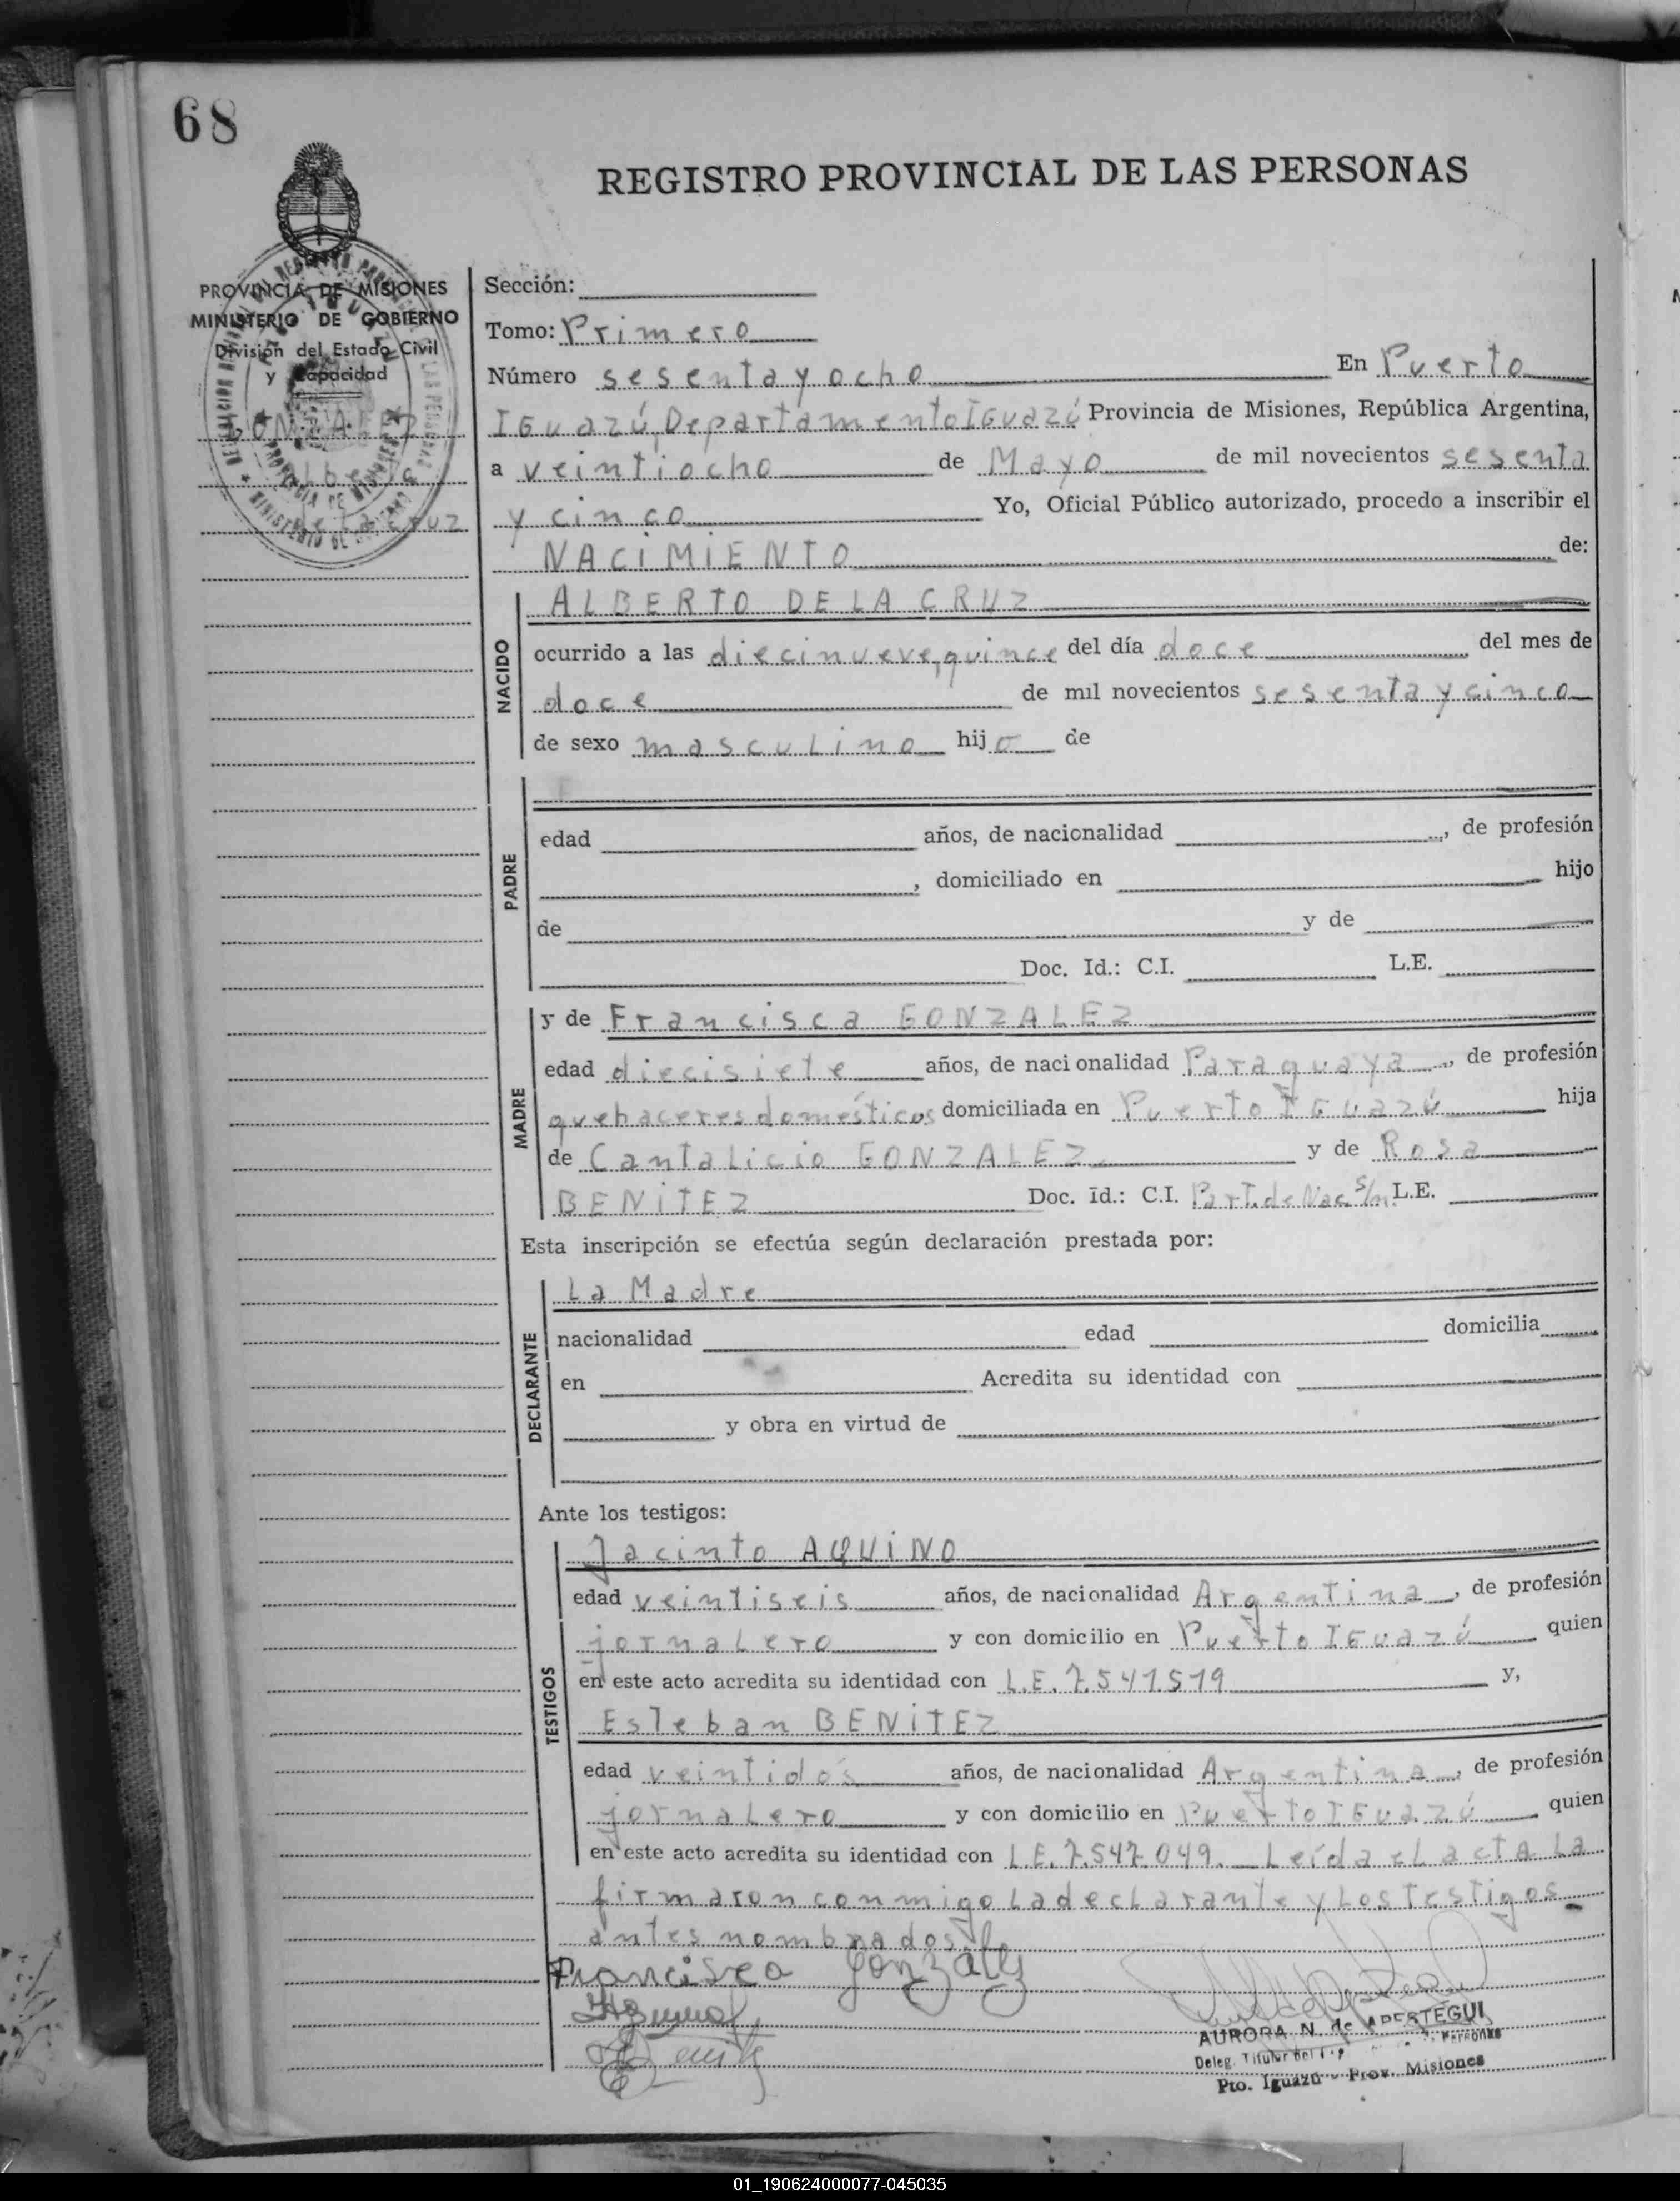 68
REGISTRO PROVINCIAL DE LAS PERSONAS
PROVINCIA DE MISIONES
MINISTERIO DE GOBIERNO
División del Estado Civil
y Capacidad
GONZALEZ
Alberto
de la Cruz
Sección:
Tomo: Primero
Número sesenta y ocho En Puerto
IGuazú, Departamento IGuazú Provincia de Misiones, República Argentina,
a veintiocho de Mayo de mil novecientos sesenta
y cinco Yo, Oficial Público autorizado, procedo a inscribir el
NACIMIENTO de:
NACIDO
ALBERTO DE LA CRUZ
ocurrido a las diecinueve, quince del día doce del mes de
doce de mil novecientos sesenta y cinco
de sexo masculino hijo de
PADRE
edad años, de nacionalidad , de profesión
, domiciliado en hijo
de y de
Doc. Id.: C.I. L.E.
MADRE
y de Francisca GONZALEZ
edad diecisiete años, de nacionalidad Paraguaya, de profesión
quehaceres domésticos domiciliada en Puerto IGuazú hija
de Cantalicio GONZALEZ y de Rosa
BENITEZ Doc. Id.: C.I. Part. de Nac. S/n. L.E.
Esta inscripción se efectúa según declaración prestada por:
DECLARANTE
La Madre
nacionalidad edad domicilia
en Acredita su identidad con
y obra en virtud de
Ante los testigos:
TESTIGOS
Jacinto AQUINO
edad veintiseis años, de nacionalidad Argentina, de profesión
jornalero y con domicilio en Puerto IGuazú quien
en este acto acredita su identidad con L.E. 7.541.519 y,
Esteban BENITEZ
edad veintidós años, de nacionalidad Argentina, de profesión
jornalero y con domicilio en Puerto IGuazú quien
en este acto acredita su identidad con L.E. 7.547.049. Leída el acta La
firmaron conmigo La declarante y Los testigos
antes nombrados
Francisca Gonzalez
AURORA N. de APESTEGUI
Deleg. Titular del
Pto. Iguazú - Prov. Misiones
01_190624000077-045035